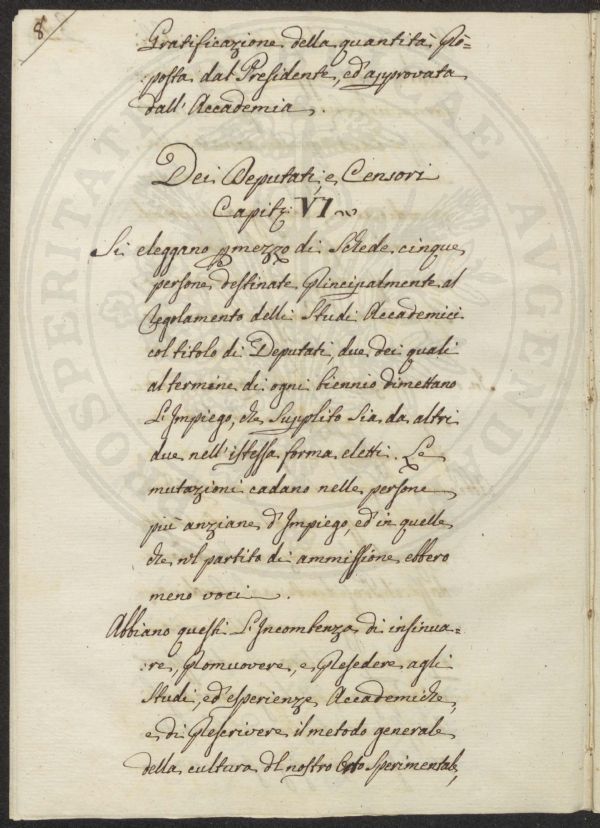 8
Gratificazione della quantità Pro=
:posta dal Presidente, ed' approvata
dall' Accademia.
Dei Deputati, e Censori
Capit. VI
Si eleggano p mezzo di Schede cinque
persone destinate Principalmente al
Regolamento delli Studi Accademici
col titolo di Deputati, due dei quali
al termine di ogni biennio dimettano
L'Impiego, che Supplito Sia da altri
due nell' istessa forma eletti. Le
mutazioni cadano nelle persone
più anziane d'Impiego, ed' in quelle
che nel partito di ammissione ebbero
meno voci.
Abbiano questi L'Incombenza di insinua=
:re, Promuovere, e Presedere agli
Studi, ed' esperienze Accademiche,
e di Prescrivere il metodo generale
della cultura del nostro Orto Sperimentale,
PROSPERITATI PUBLICAE AUGENDAE